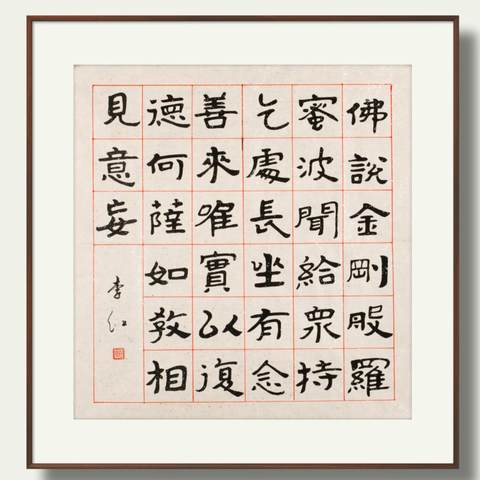 佛說金剛般羅
蜜波聞給衆持
乞處長坐有念
善來唯實以復
德何薩如教相
見意妄
李红